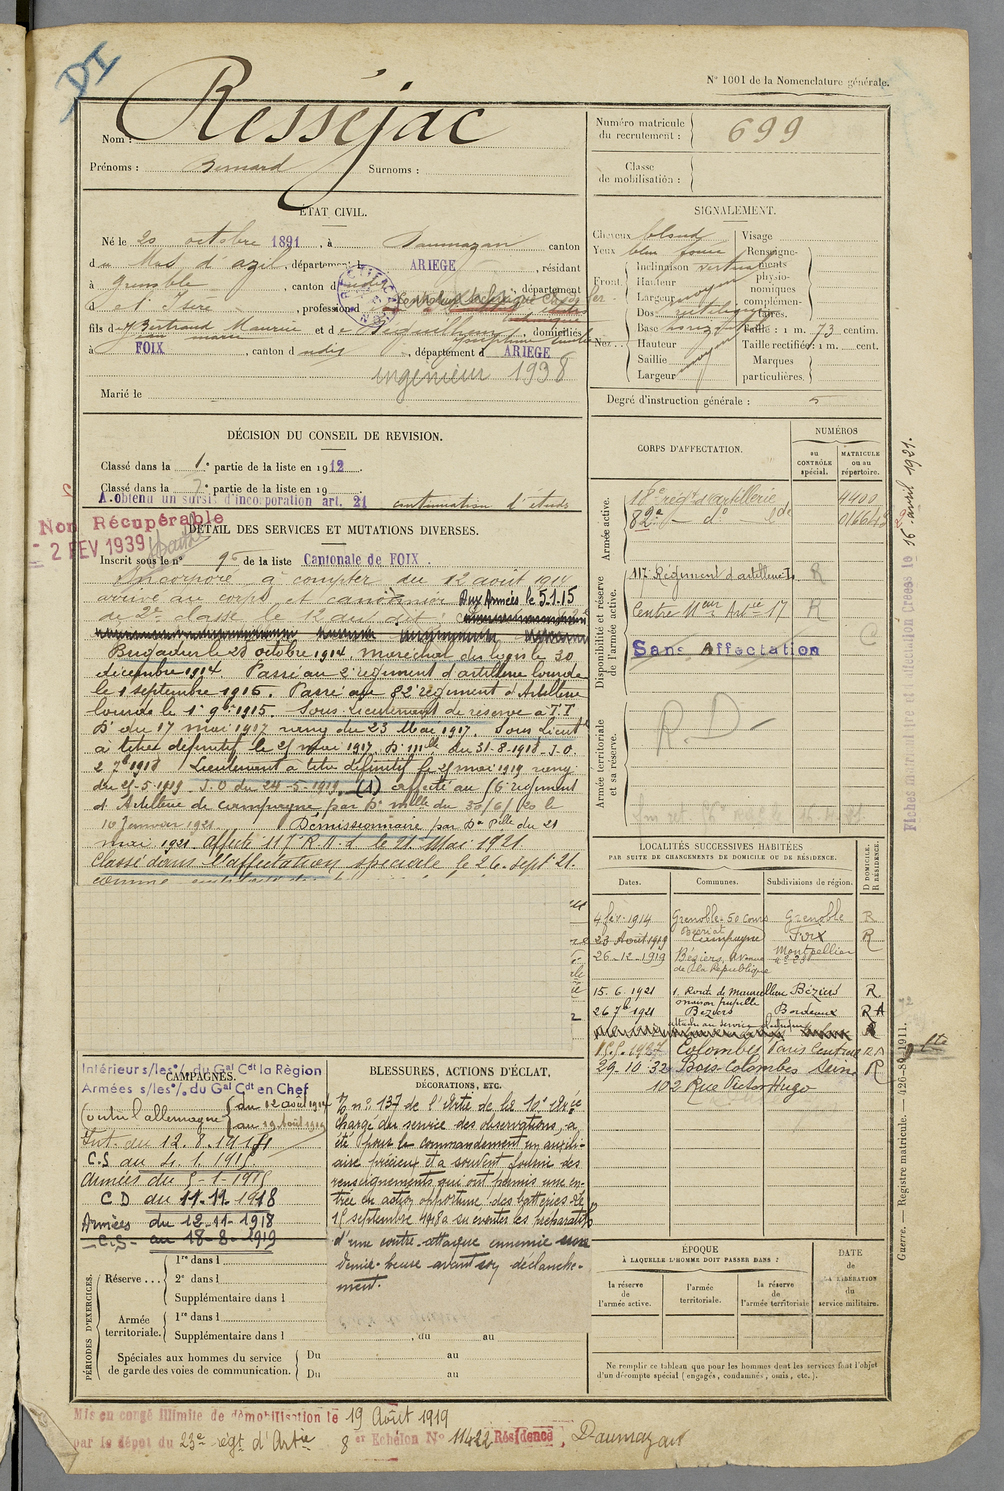 DI
N° 1001 de la Nomenclature générale.
Nom : Resséjac
Prénoms : Bernard Surnoms :
Numéro matricule du recrutement : 699
Classe de mobilisation :
ÉTAT CIVIL.
Né le 20 octobre 1891, à Daumazan canton
du Mas d'azil, département ARIEGE, résidant
à Grenoble, canton d, département
d e l'Isère, profession d
fils de Bertrand Maurice et de, domiciliés
à FOIX, canton d udit, département d ARIEGE
ingénieur 1938
Marié le
SIGNALEMENT.
Cheveux blond
Yeux bleu
Front
Inclinaison vertical
Hauteur
Largeur moyen
Nez
Dos rectiligne
Base
Hauteur
Saillie moyen
Largeur
Visage
Renseignements physionomiques complémentaires.
Taille : 1 m. 73 centim.
Taille rectifiée : 1 m. cent.
Marques particulières.
Degré d'instruction générale : 5
DÉCISION DU CONSEIL DE REVISION.
Classé dans la 1e partie de la liste en 1912
Classé dans la partie de la liste en 19
A obtenu un sursis d'incorporation art. 21 continuation d'études
Non Récupérable
- 2 FEV 1939
DÉTAIL DES SERVICES ET MUTATIONS DIVERSES.
Inscrit sous le n° 96 de la liste Cantonale de FOIX.
Incorporé à compter du 12 août 1914
arrivé au corps et canonnier Aux Armées le 5.1.15
de 2e classe le 12 au dit
Brigadier le 28 octobre 1914, maréchal des logis le 30
décembre 1914 Passé au 2e régiment d'artillerie lourde
le 1 septembre 1915. Passé au 82e régiment d'Artillerie
lourde le 1e 9bre 1915. Sous-Lieutenant de réserve à T.T
Dn du 17 mai 1917 rang du 23 Mai 1917. Sous Lieutt
à titre définitif le 25 mai 1917. Dn mlle du 31-8-1918 J.O.
2 7bre 1918 Lieutenant à titre définitif le 25 mai 1919 rang
du 25-5-1919 J.O du 24-5-1919 (1) affecté au 16e régiment
d'Artillerie de campagne par Dn mlle du 30/6/20 le
10 Janvier 1921 Démissionnaire par Dn Plle du 21
mai 1921 affecté 117e R.A.L le 21 Mai 1921
Classé dans l'affectation spéciale le 26. Sept 21.
comme
CORPS D'AFFECTATION.
NUMÉROS
au CONTRÔLE spécial.
MATRICULE ou au répertoire.
Armée active.
18e régt d'artillerie 4400
82e — do Lde
Disponibilité et réserve de l'armée active.
117 Régiment d'artillerie L. R
Centre Meur Artie 17 R
Sans Affectation
C
Armée territoriale et sa réserve.
RD
Fiches matriculaire et d'affectation créées le 16 1931.
LOCALITÉS SUCCESSIVES HABITÉES
PAR SUITE DE CHANGEMENTS DE DOMICILE OU DE RÉSIDENCE.
Dates. Communes. Subdivisions de région. D DOMICILE. R RÉSIDENCE.
4 fév. 1914 Grenoble 50 Cours Berriat Grenoble R
23 Août 1919 Campagne Foix R
26-12-1919 Béziers, Avenue de la République n° 23 Montpellier
15.6.1921 1. Route de maureilhan maison pupille Béziers R
26 7b 1921 Béziers Bordeaux R A
1927 Colombes Paris Central R A
29.10.32 Bois Colombes Seine R
102 Rue Victor Hugo
Intérieur s/les o/. du Gal Cdt la Région
CAMPAGNES.
Armées s/les o/. du Gal Cdt en Chef
Contre l'allemagne du 12 août 1914 au 19 août 1919
Int. du 12.8.1914
C.S au 4.1.1915
armées du 5-1-1915
C D au 11.11.1918
Armées du 12-11-1918
C.S- au 18-8-1919
BLESSURES, ACTIONS D'ÉCLAT,
DÉCORATIONS, ETC.
n° 137 de l'Artie de la 10e
chargé du service des observations, a
été pour le commandement un auxili-
aire précieux et a souvent fourni des
renseignements qui ont permis une en-
trée en action opportune des batteries. Le
15 septembre 1918 a su éventer les préparatifs
d'une contre-attaque ennemie une
demie-heure avant son déclanche-
ment.
PÉRIODES D'EXERCICES.
Réserve...
1re dans l
2e dans l
Supplémentaire dans l
Armée territoriale.
1re dans l
Supplémentaire dans l , du au
Spéciales aux hommes du service de garde des voies de communication.
Du au
Du au
ÉPOQUE
À LAQUELLE L'HOMME DOIT PASSER DANS :
la réserve de l'armée active.
l'armée territoriale.
la réserve de l'armée territoriale
DATE de LA LIBÉRATION du service militaire.
Ne remplir ce tableau que pour les hommes dont les services font l'objet
d'un décompte spécial (engagés, condamnés, omis, etc.).
Guerre. — Registre matricule. — 426-89-1911.
Mis en congé illimité de démobilisation le 19 Août 1919
par le dépôt du 23e régt d'Artie 8 e Echelon N° 11422 Résidence, Daumazan